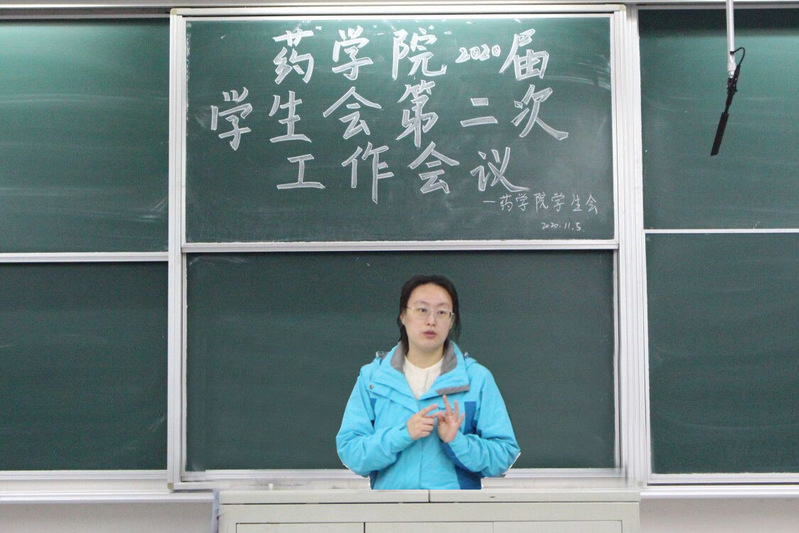 药学院2020届
学生会第二次
工作会议
—药学院学生会
2020.11.5